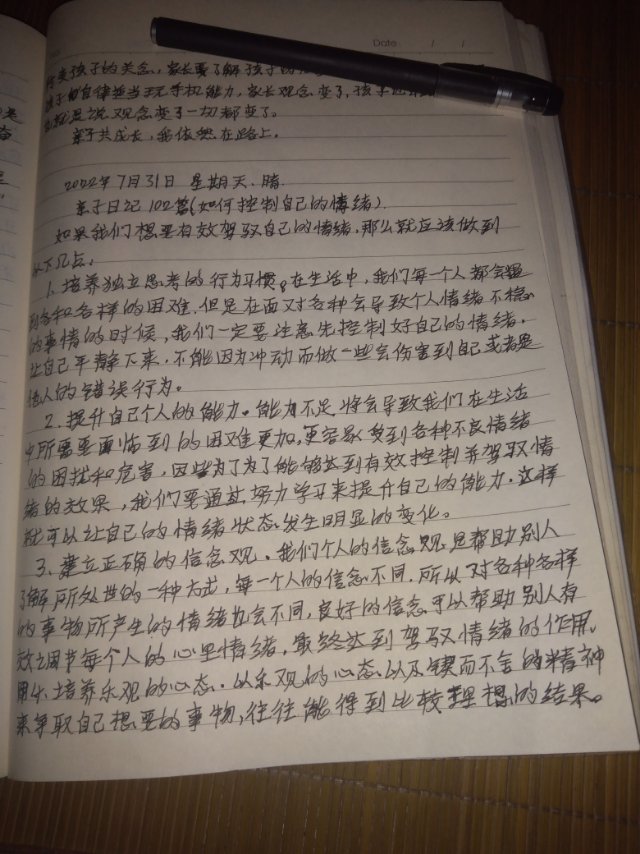 Date / /
孩子的关念，家长要了解孩子的
孩子的自律是当玩手机能力，家长观念变了，孩子也
就是说观念变了一切都变了。
亲子共成长，我依然在路上。
2022年7月31日 星期天.晴.
亲子日记102篇(如何控制自己的情绪).
如果我们想要有效驾驭自己的情绪，那么就应该做到
以下几点：
1、培养独立思考的行为习惯。在生活中，我们每一个人都会遇
到各种各样的困难.但是在面对各种会导致个人情绪不稳
的事情的时候，我们一定要注意先控制好自己的情绪.
让自己平静下来.不能因为冲动而做一些会伤害到自己或者是
他人的错误行为。
2.提升自己个人的能力。能力不足将会导致我们在生活
中所需要面临到的困难更加,更容易受到各种不良情绪
的困扰和危害，因此为了为了能够达到有效控制并驾驭情
绪的效果，我们要通过努力学习来提升自己的能力.这样
就可以让自己的情绪状态发生明显的变化。
3、建立正确的信念观。我们个人的信念观是帮助别人
了解所处世的一种方式，每一个人的信念不同.所以对各种各样
的事物所产生的情绪也会不同，良好的信念可以帮助别人有
效调节每个人的心里情绪，最终达到驾驭情绪的作用。
用4.培养乐观的心态.以乐观的心态以及锲而不舍的精神
来争取自己想要的事物,往往能得到比较理想的结果。